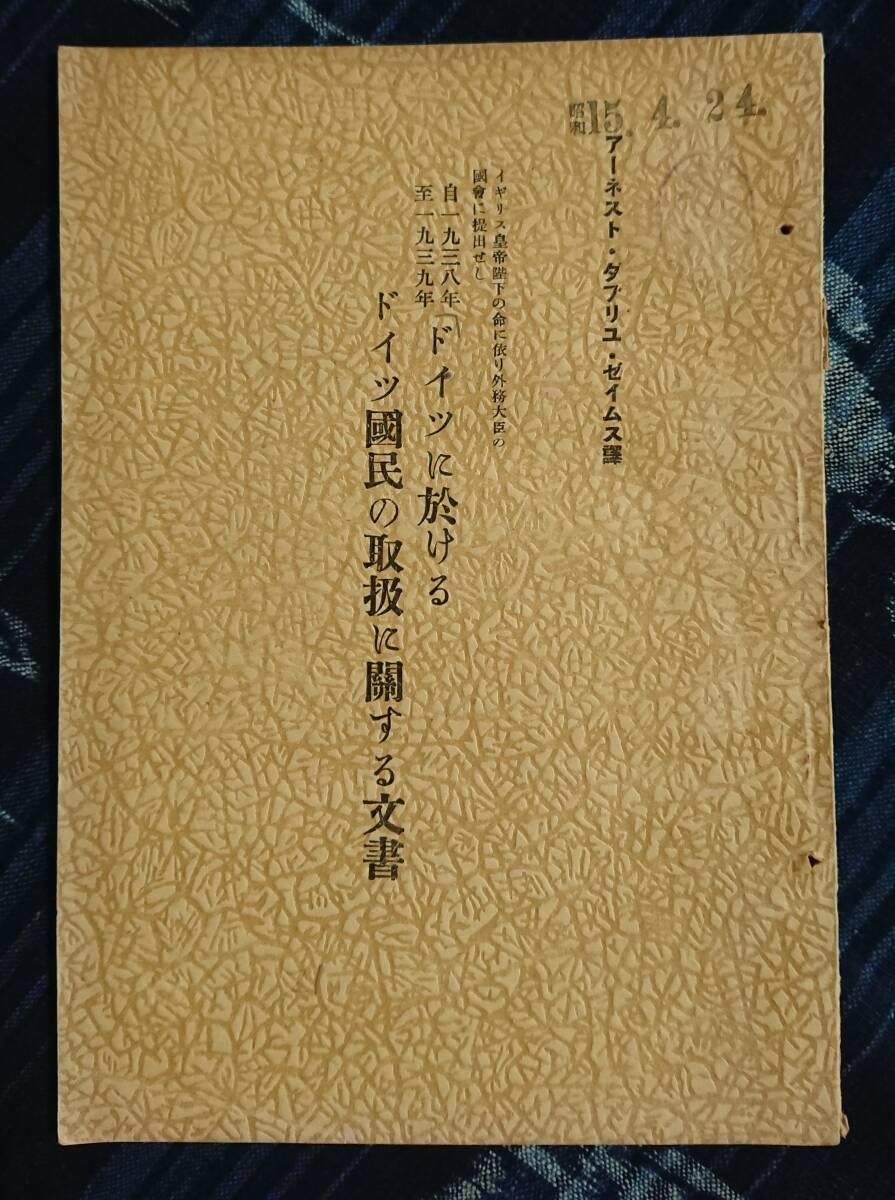 昭和15. 4. 24.
アーネスト・ダブリユ・ゼイムス譯
イギリス皇帝陛下の命に依り外務大臣の
國會に提出せし
自一九三八年
至一九三九年
ドイツに於ける
ドイツ國民の取扱に關する文書